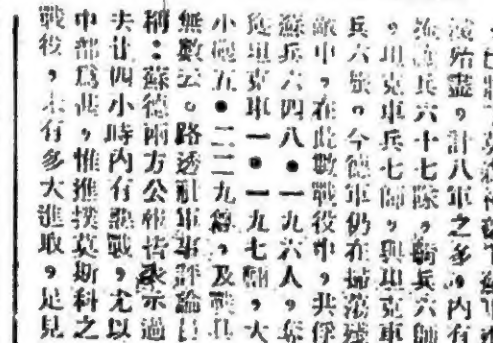 滅殆盡。計八軍之多。內有
砲兵六十七隊，騎兵六師
，坦克車兵七師，與坦克車
兵六旅。今德軍仍在掃蕩殘
敵中，在此數戰役中，共俘
蘇兵六四八●一九六人，奪
獲坦克車一●一九七輛，大
小砲五●二二九總，及戰具
無數云。路透社軍事評論員
稱：蘇德兩方公報皆表示過
去廿四小時內有惡戰，尤以
中部爲甚，惟進撲莫斯科之
戰役，未有多大進取，足見